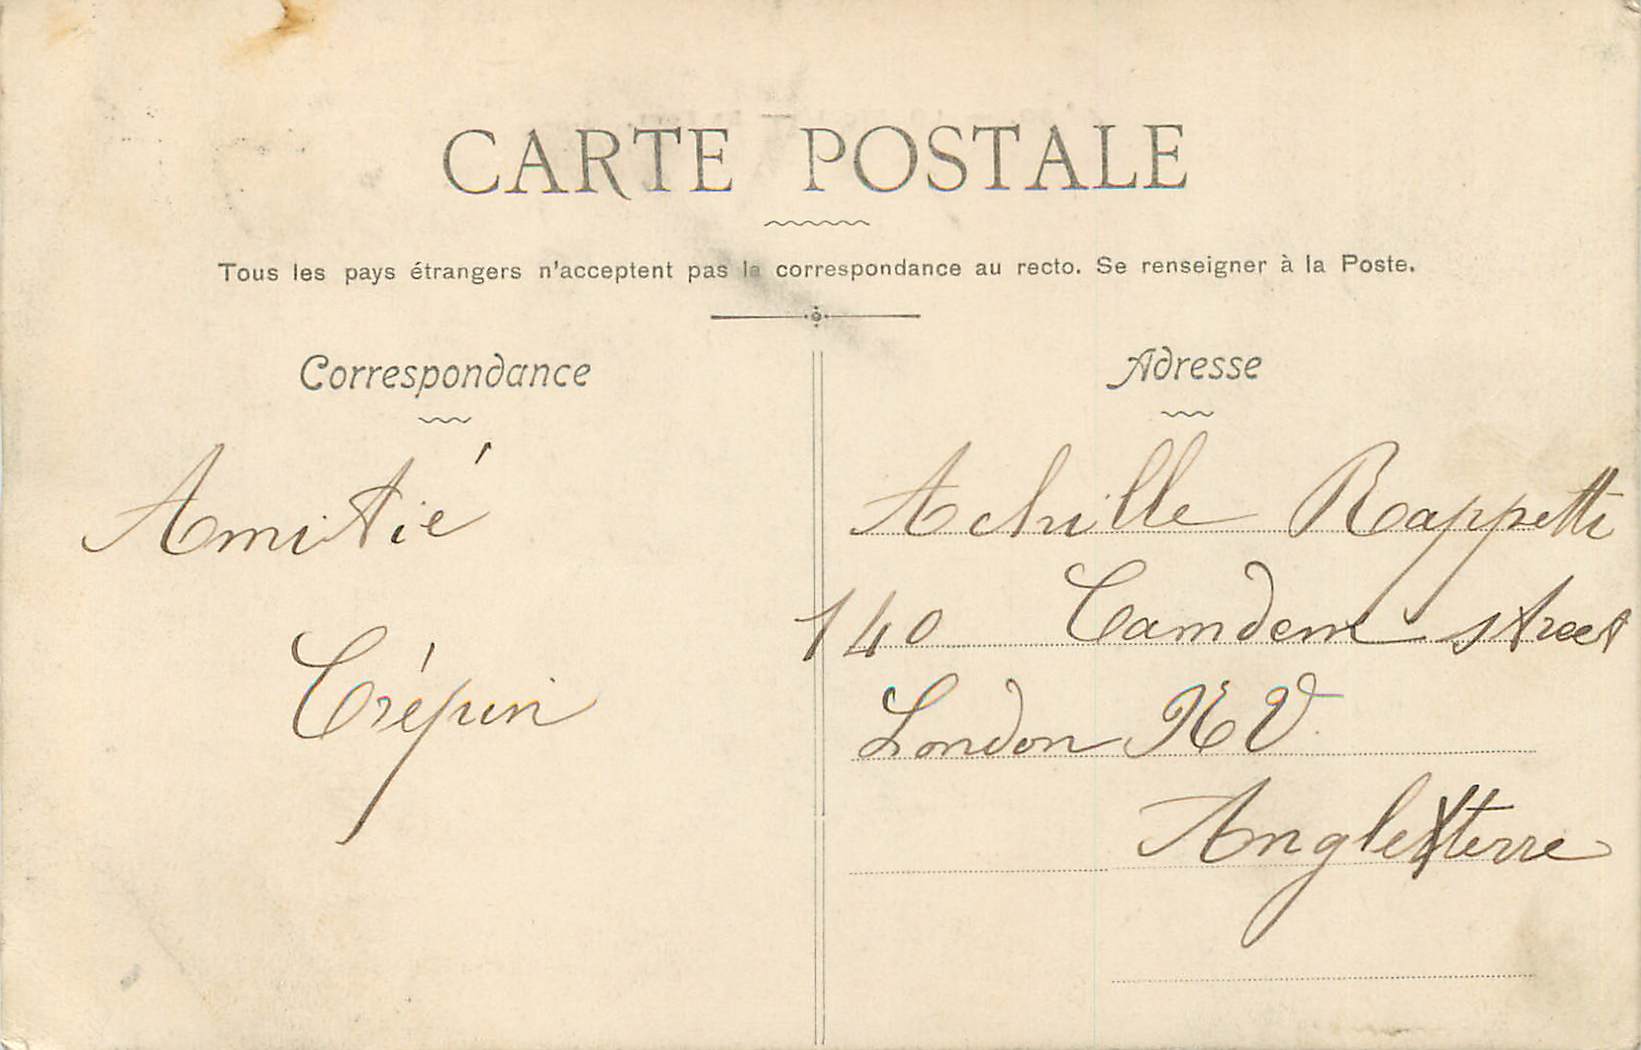 CARTE POSTALE
Tous les pays étrangers n'acceptent pas la correspondance au recto. Se renseigner à la Poste.
Correspondance
Amitié
Crépin
Adresse
Achille Rappetti
140 Camdem street
London NV
Angleterre